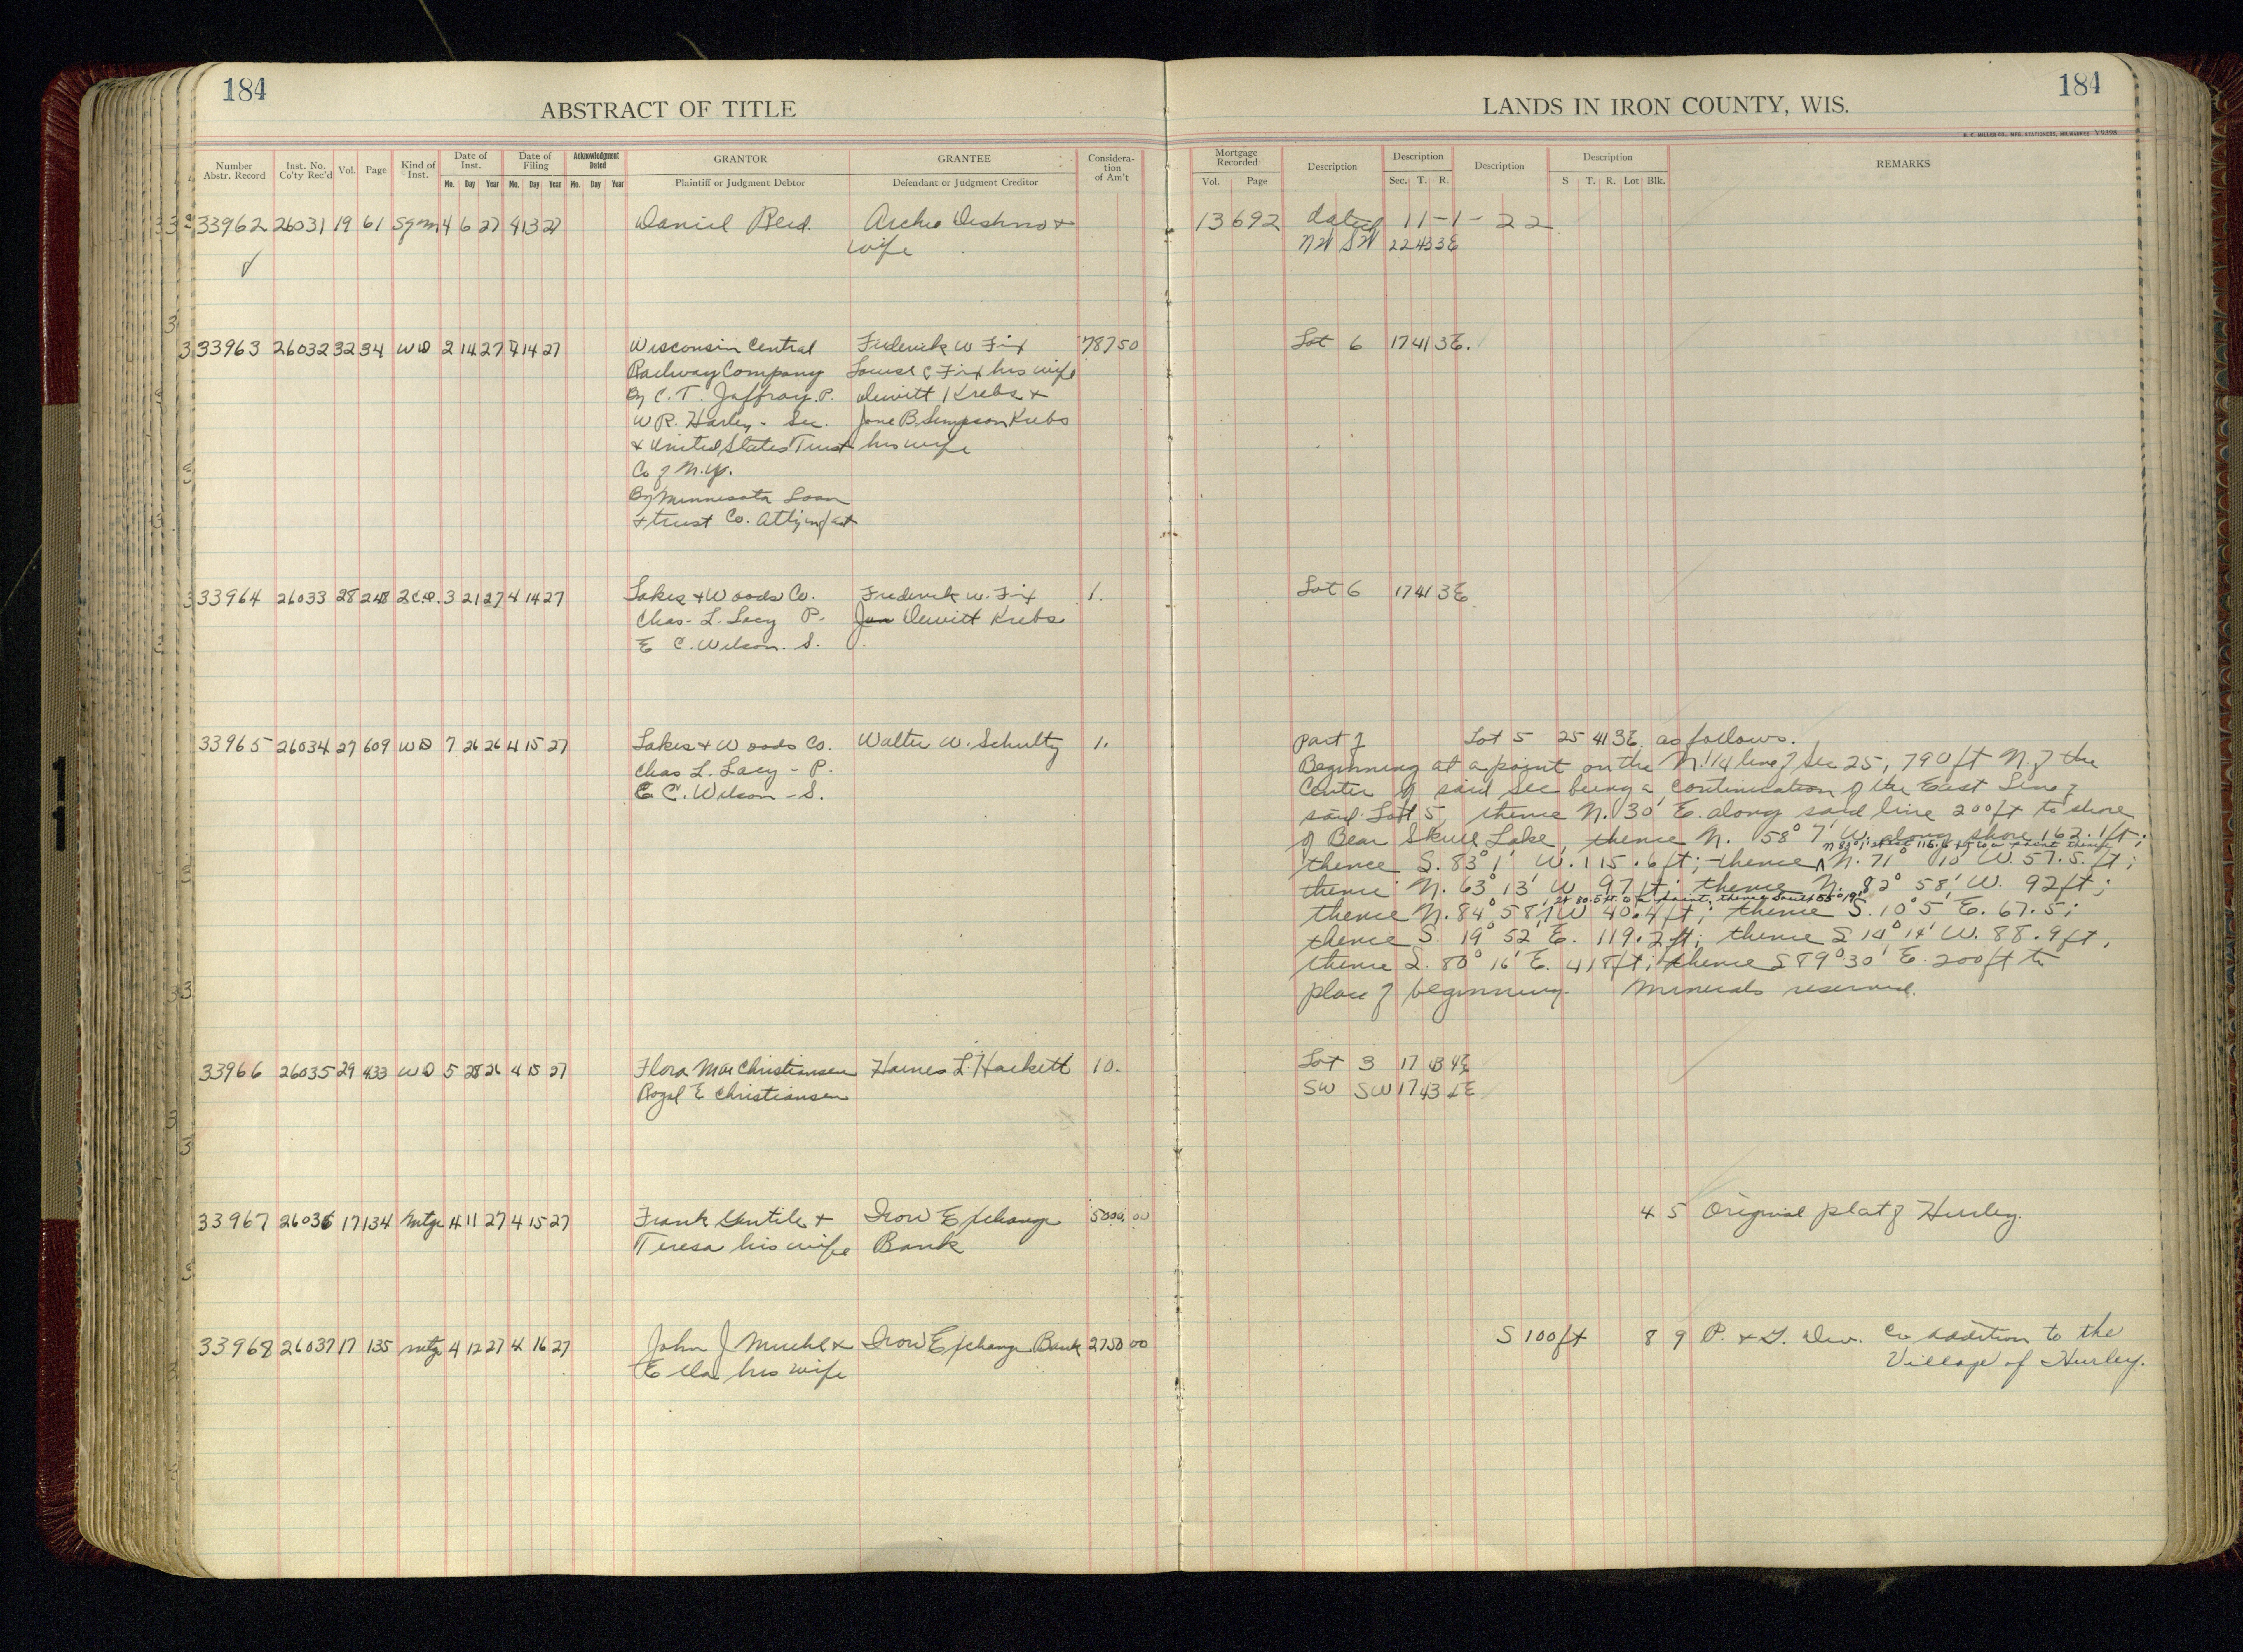 184
184
ABSTRACT OF TITLE
LANDS IN IRON COUNTY, WIS.
H. C. MILLER CO., MFG. STATIONERS, MILWAUKEE Y9398
Number Abstr. Record Inst. No. Co'ty Rec'd Vol. Page Kind of Inst. Date of Inst. Date of Filing Acknowledgment Dated GRANTOR GRANTEE Consideration of Am't Mortgage Recorded Description Description Description Description REMARKS
Mo. Day Year Mo. Day Year Mo. Day Year Plaintiff or Judgment Debtor Defendant or Judgment Creditor Vol. Page Sec. T. R. S T. R. Lot Blk.
33962 26031 19 61 Sgm 4 6 27 4 13 27 Daniel Reid. Archie Deshno + 13 692 dated 11-1-22
wife NW SW 22 43 3E
33963 26032 32 34 WD 2 14 27 4 14 27 Wisconsin Central Frederick W Fix 787 50 Lot 6 17 41 3E.
Railway Company Louise C Fix his wife
By C. T. Jaffray. P. Dewitt Krebs +
W R. Harley - Sec. Jane B. Simpson Krebs
+ United States Trust his wife
Co of N.Y.
By Minnesota Loan
+ trust Co. Atty in fact
33964 26033 28 248 2CD. 3 21 27 4 14 27 Lakes + Woods Co. Frederick W. Fix 1. Lot 6 17 41 3E
Chas. L. Lacy P. Jan Dewitt Krebs
E C. Wilson. S.
33965 26034 27 609 WD 7 26 26 4 15 27 Lakes + Woods Co. Walter W. Schultz 1. part of Lot 5 25 41 3E. as follows.
Chas L. Lacy - P. Beginning at a point on the N. 1/4 line of Sec 25, 790 ft N. of the
E C. Wilson - S. Center of said Sec being a continuation of the East Line of
said Lot 5, thence N. 30' E. along said line 200 ft to shore
of Bear Skull Lake, thence N. 58° 7' W. along shore 162.1 ft;
thence S. 83° 1' W. 115.6 ft; thence N. 71° 10' W. 57.5. ft;
thence N. 63° 13' W 97 ft; thence N. 82° 58' W. 92 ft;
thence N. 84° 58' W 40.4 ft; thence S. 10° 5' E. 67.5;
thence S. 19° 52' E. 119.2 ft; thence S 14° 14' W. 88.9 ft,
thence S. 80° 16' E. 418 ft; thence S 89° 30' E. 200 ft to
place of beginning. Minerals reserved.
33966 26035 29 433 WD 5 28 26 4 15 27 Flora Mae Christiansen Haines L. Hackett 10. Lot 3 17 43 4E
Royal E Christiansen SW SW 17 43 4E
33967 26036 17 134 Mtge 4 11 27 4 15 27 Frank Gentile + Iron Exchange 5000. 00 4 5 Original plat of Hurley.
Teresa his wife Bank
33968 26037 17 135 mtg 4 12 27 4 16 27 John J Muehl + Iron Exchange Bank 2750 00 S 100 ft 8 9 P. + L. Dev. Co addition to the
Ella his wife Village of Hurley.